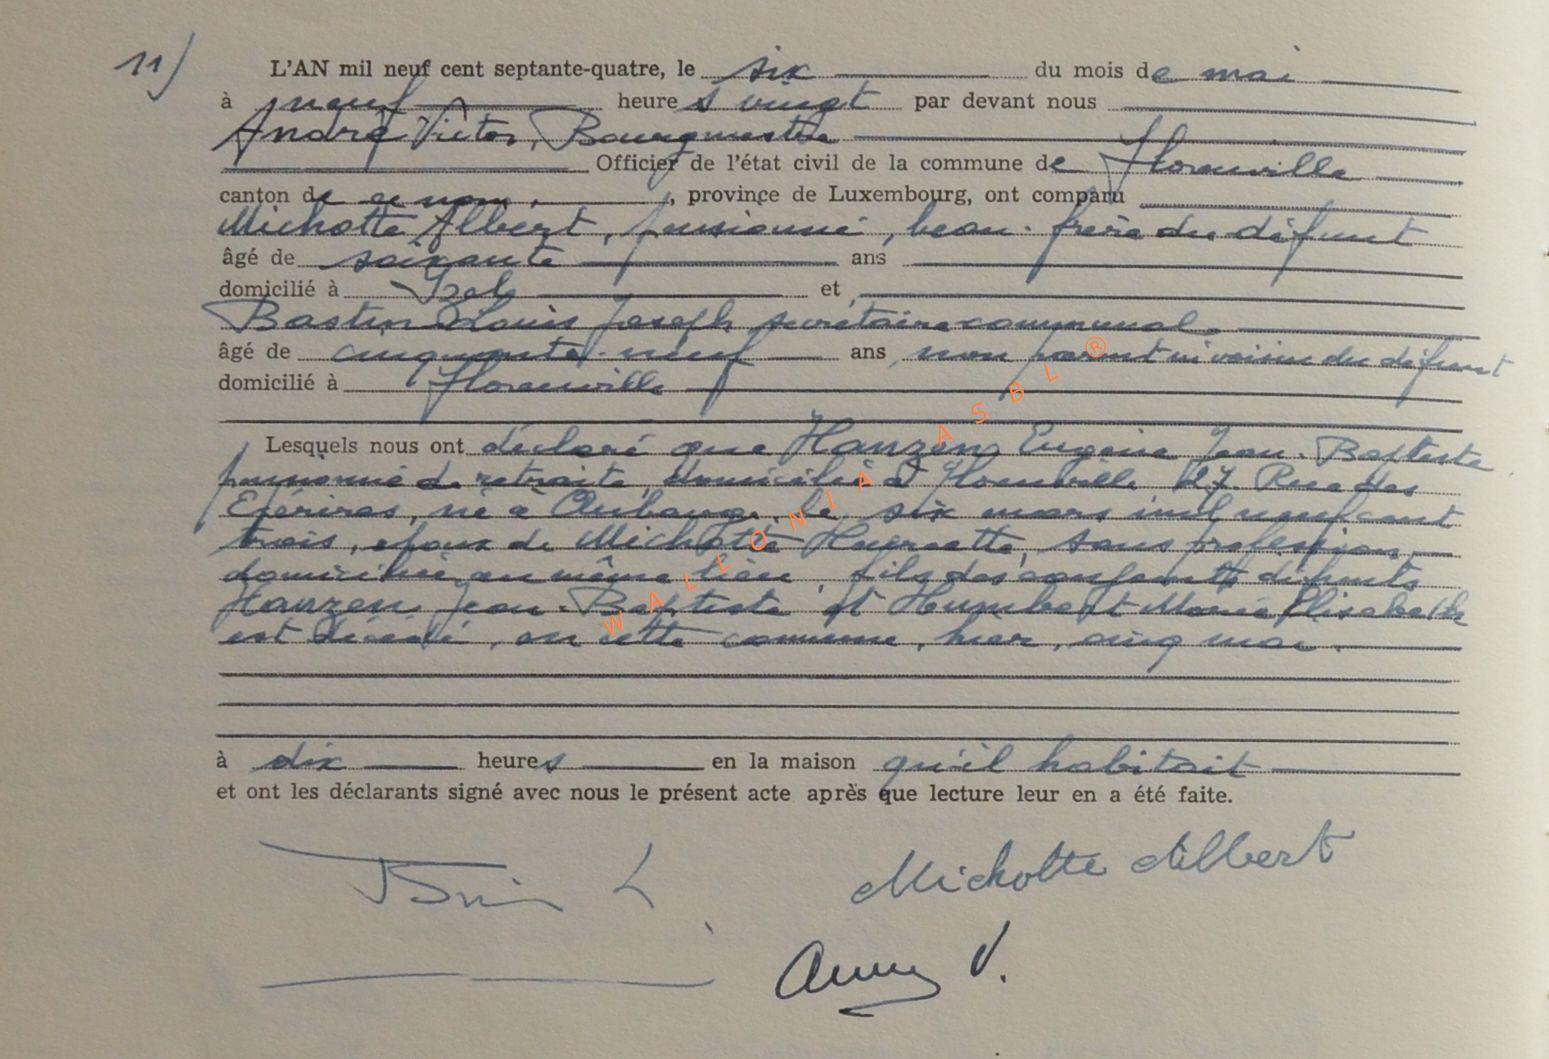 11) L'AN mil neuf cent septante-quatre, le six du mois de mai
à neuf heures vingt par devant nous
André Victor, Bourgmestre
Officier de l'état civil de la commune de Florenville
canton de ce nom, province de Luxembourg, ont comparu
Michotte Albert, pensionné, beau-frère du défunt
âgé de soixante ans
domicilié à Izel et
Bastin Louis Joseph secrétaire communal
âgé de cinquante-neuf ans, non parent ni voisin du défunt
domicilié à Florenville
Lesquels nous ont déclaré que Hanzen Eugène Jean-Baptiste
pensionné de retraite, domicilié à Florenville 27 Rue des
né à Aubange, le six mars mil neuf cent
trois, époux de Michotte sans profession,
domiciliée au même lieu, fils des conjoints défunts
Hanzen Jean-Baptiste et Humbert Marie Elisabeth
est décédé, en cette commune, hier, cinq mai.
à dix heures en la maison qu'il habitait
et ont les déclarants signé avec nous le présent acte après que lecture leur en a été faite.
Michotte Albert
WALEONIA ASBL ®